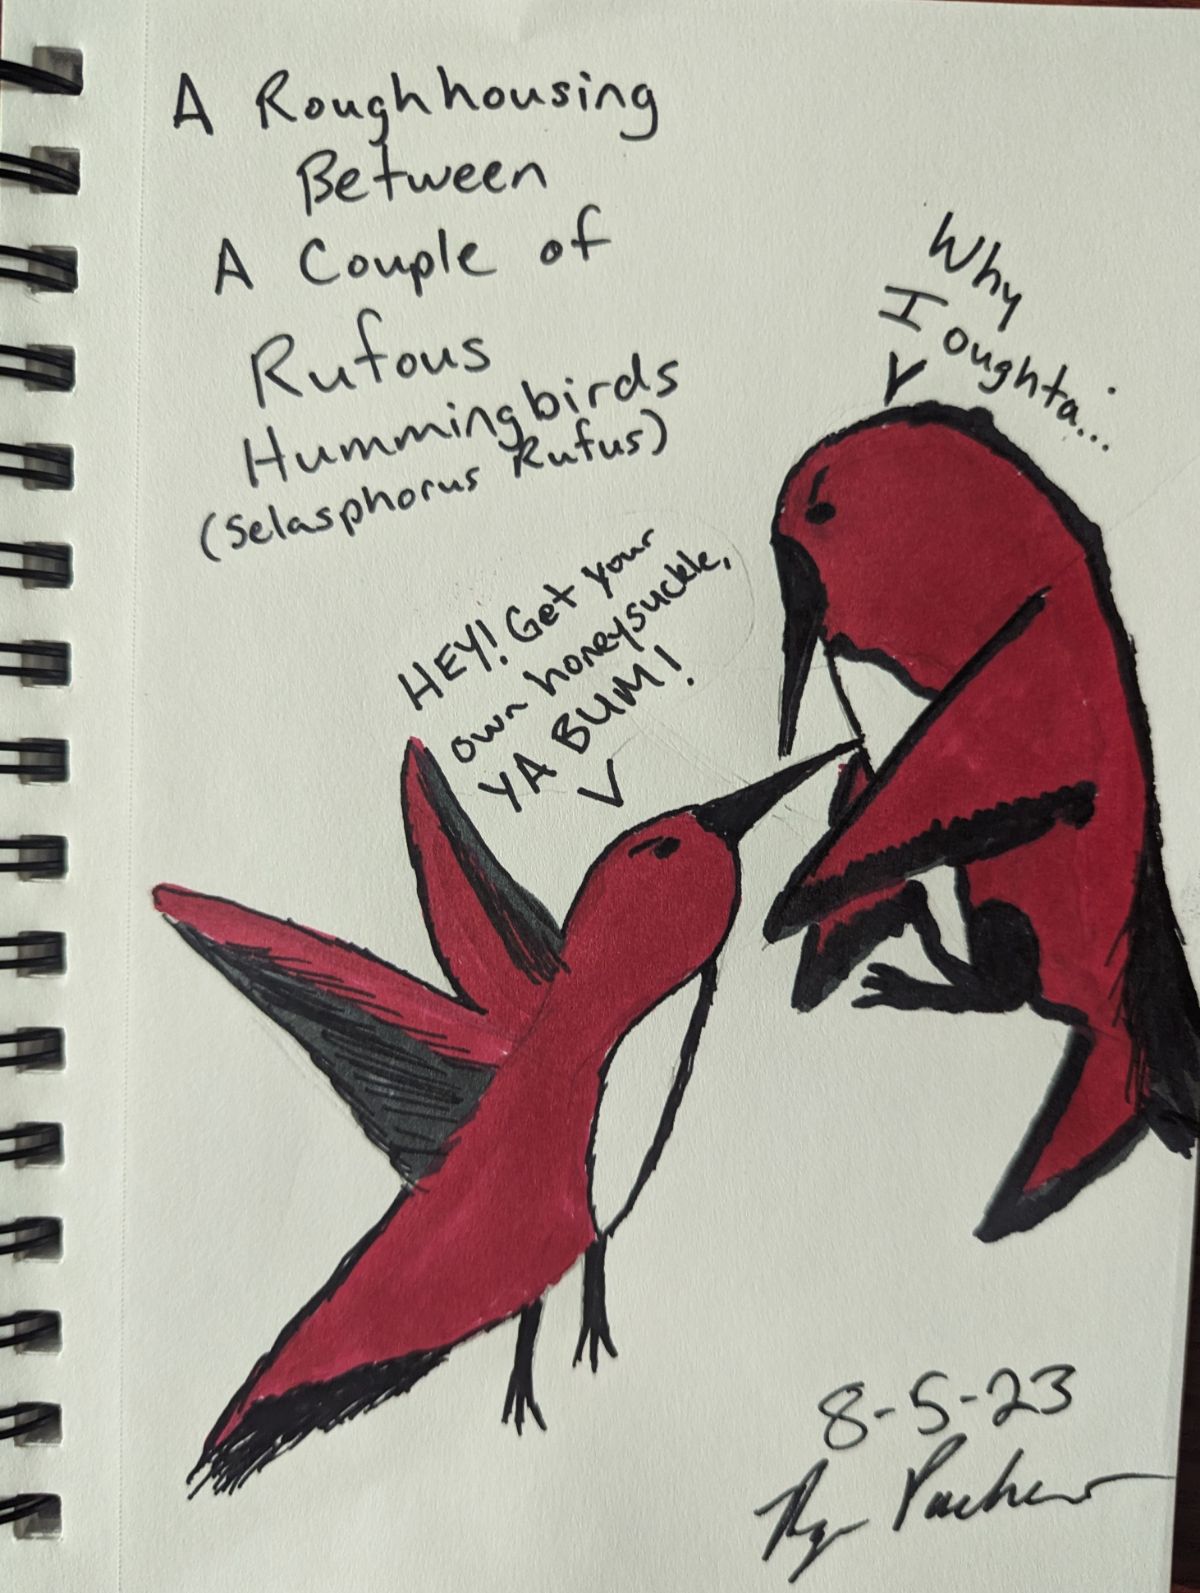 A Roughhousing
Between
A Couple of
Rufous
Hummingbirds
(Selasphorus Rufus)
Why
I oughta...
HEY! Get your
own honeysuckle,
YA BUM!
8-5-23